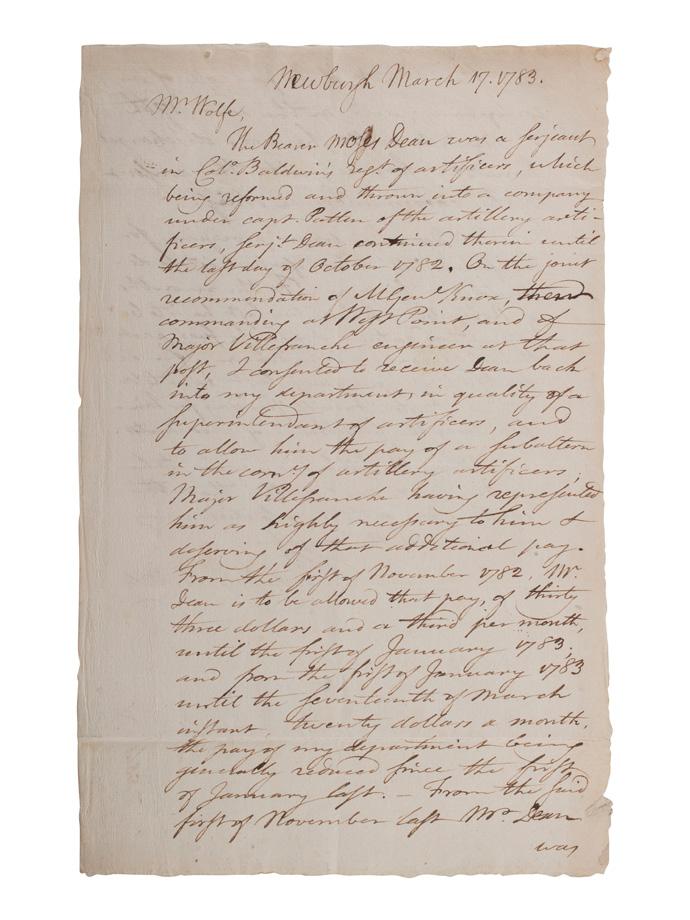 Newburgh March 17. 1783.
Mr Wolfe,
The Bearer Moses Dean was a serjeant
in Colo. Baldwin's regt. of artificers, which
being reformed and thrown into a company
under capt. Patten of the artillery arti-
ficers, serjt. Dean continued therein until
the last day of October 1782. On the joint
recommendation of M Genl Knox,
commanding at West Point, and of
Major Villefranche engineer at that
post, I consented to receive Dean back
into my department, in quality of a
superintendant of artificers, and
to allow him the pay of a subaltern
in the compy. of artillery artificers;
Major Villefranche having represented
him as highly necessary to him &
deserving of that additional pay.
From the first of November 1782, Mr.
Dean is to be allowed that pay, of thirty
three dollars and a third per month,
until the first of January 1783;
and from the first of January 1783
until the seventeenth of March
instant, twenty dollars a month,
the pay of my department being
generally reduced since the first
of January last. — From the said
first of November last Mr. Dean
was